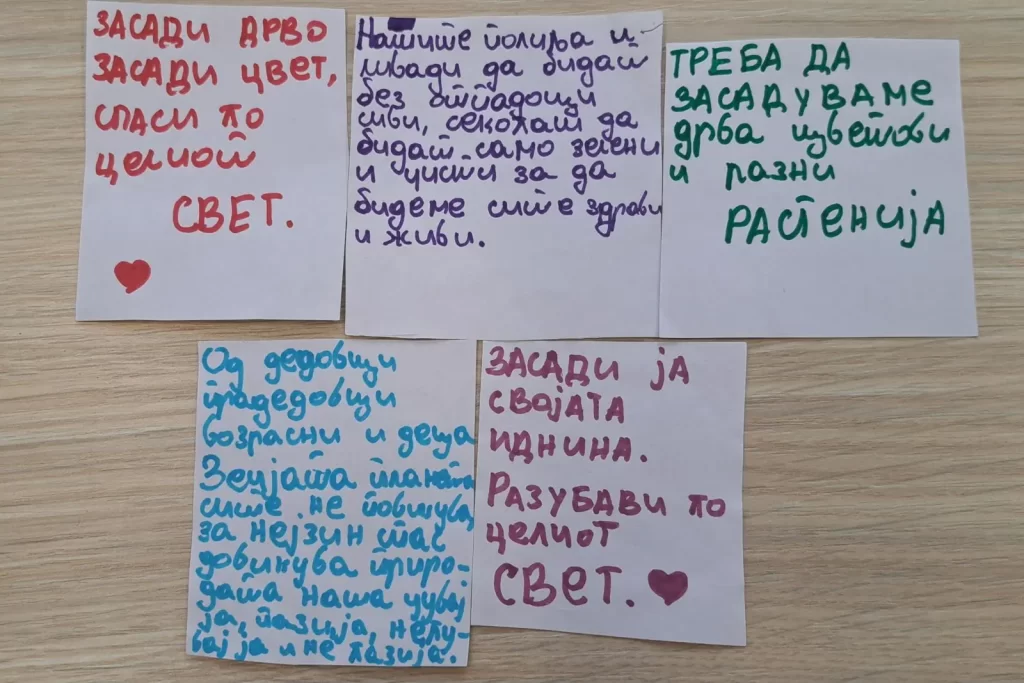 ЗАСАДИ ДРВО
ЗАСАДИ ЦВЕТ,
СПАСИ ГО
ЦЕЛИОТ
СВЕТ.
Нашите полиња и
ливади да бидат
без отпадоци
сиви, секогаш да
бидат само зелени
и чисти за да
бидеме сите здрави
и живи.
ТРЕБА ДА
ЗАСАДУВАМЕ
дрва цветови
и разни
РАСТЕНИЈА
Од дедовци
прадедовци
возрасни и деца
Земјата
сите не повикува
за нејзин спас
довикува приро-
дата наша чувај
ја, пазија,
вај ја и не пазија.
ЗАСАДИ ЈА
СВОЈАТА
ИДНИНА.
РАЗУБАВИ ГО
ЦЕЛИОТ
СВЕТ.